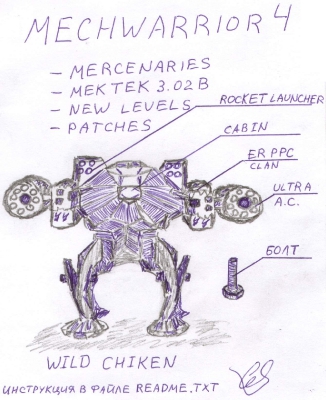 MECHWARRIOR 4
- MERCENARIES
- MEKTEK 3.02B
- NEW LEVELS
- PATCHES
ROCKET LAUNCHER
CABIN
ER PPC
CLAN
ULTRA
A.C.
БОЛТ
WILD CHIKEN
ИНСТРУКЦИЯ В ФАЙЛЕ README.TXT